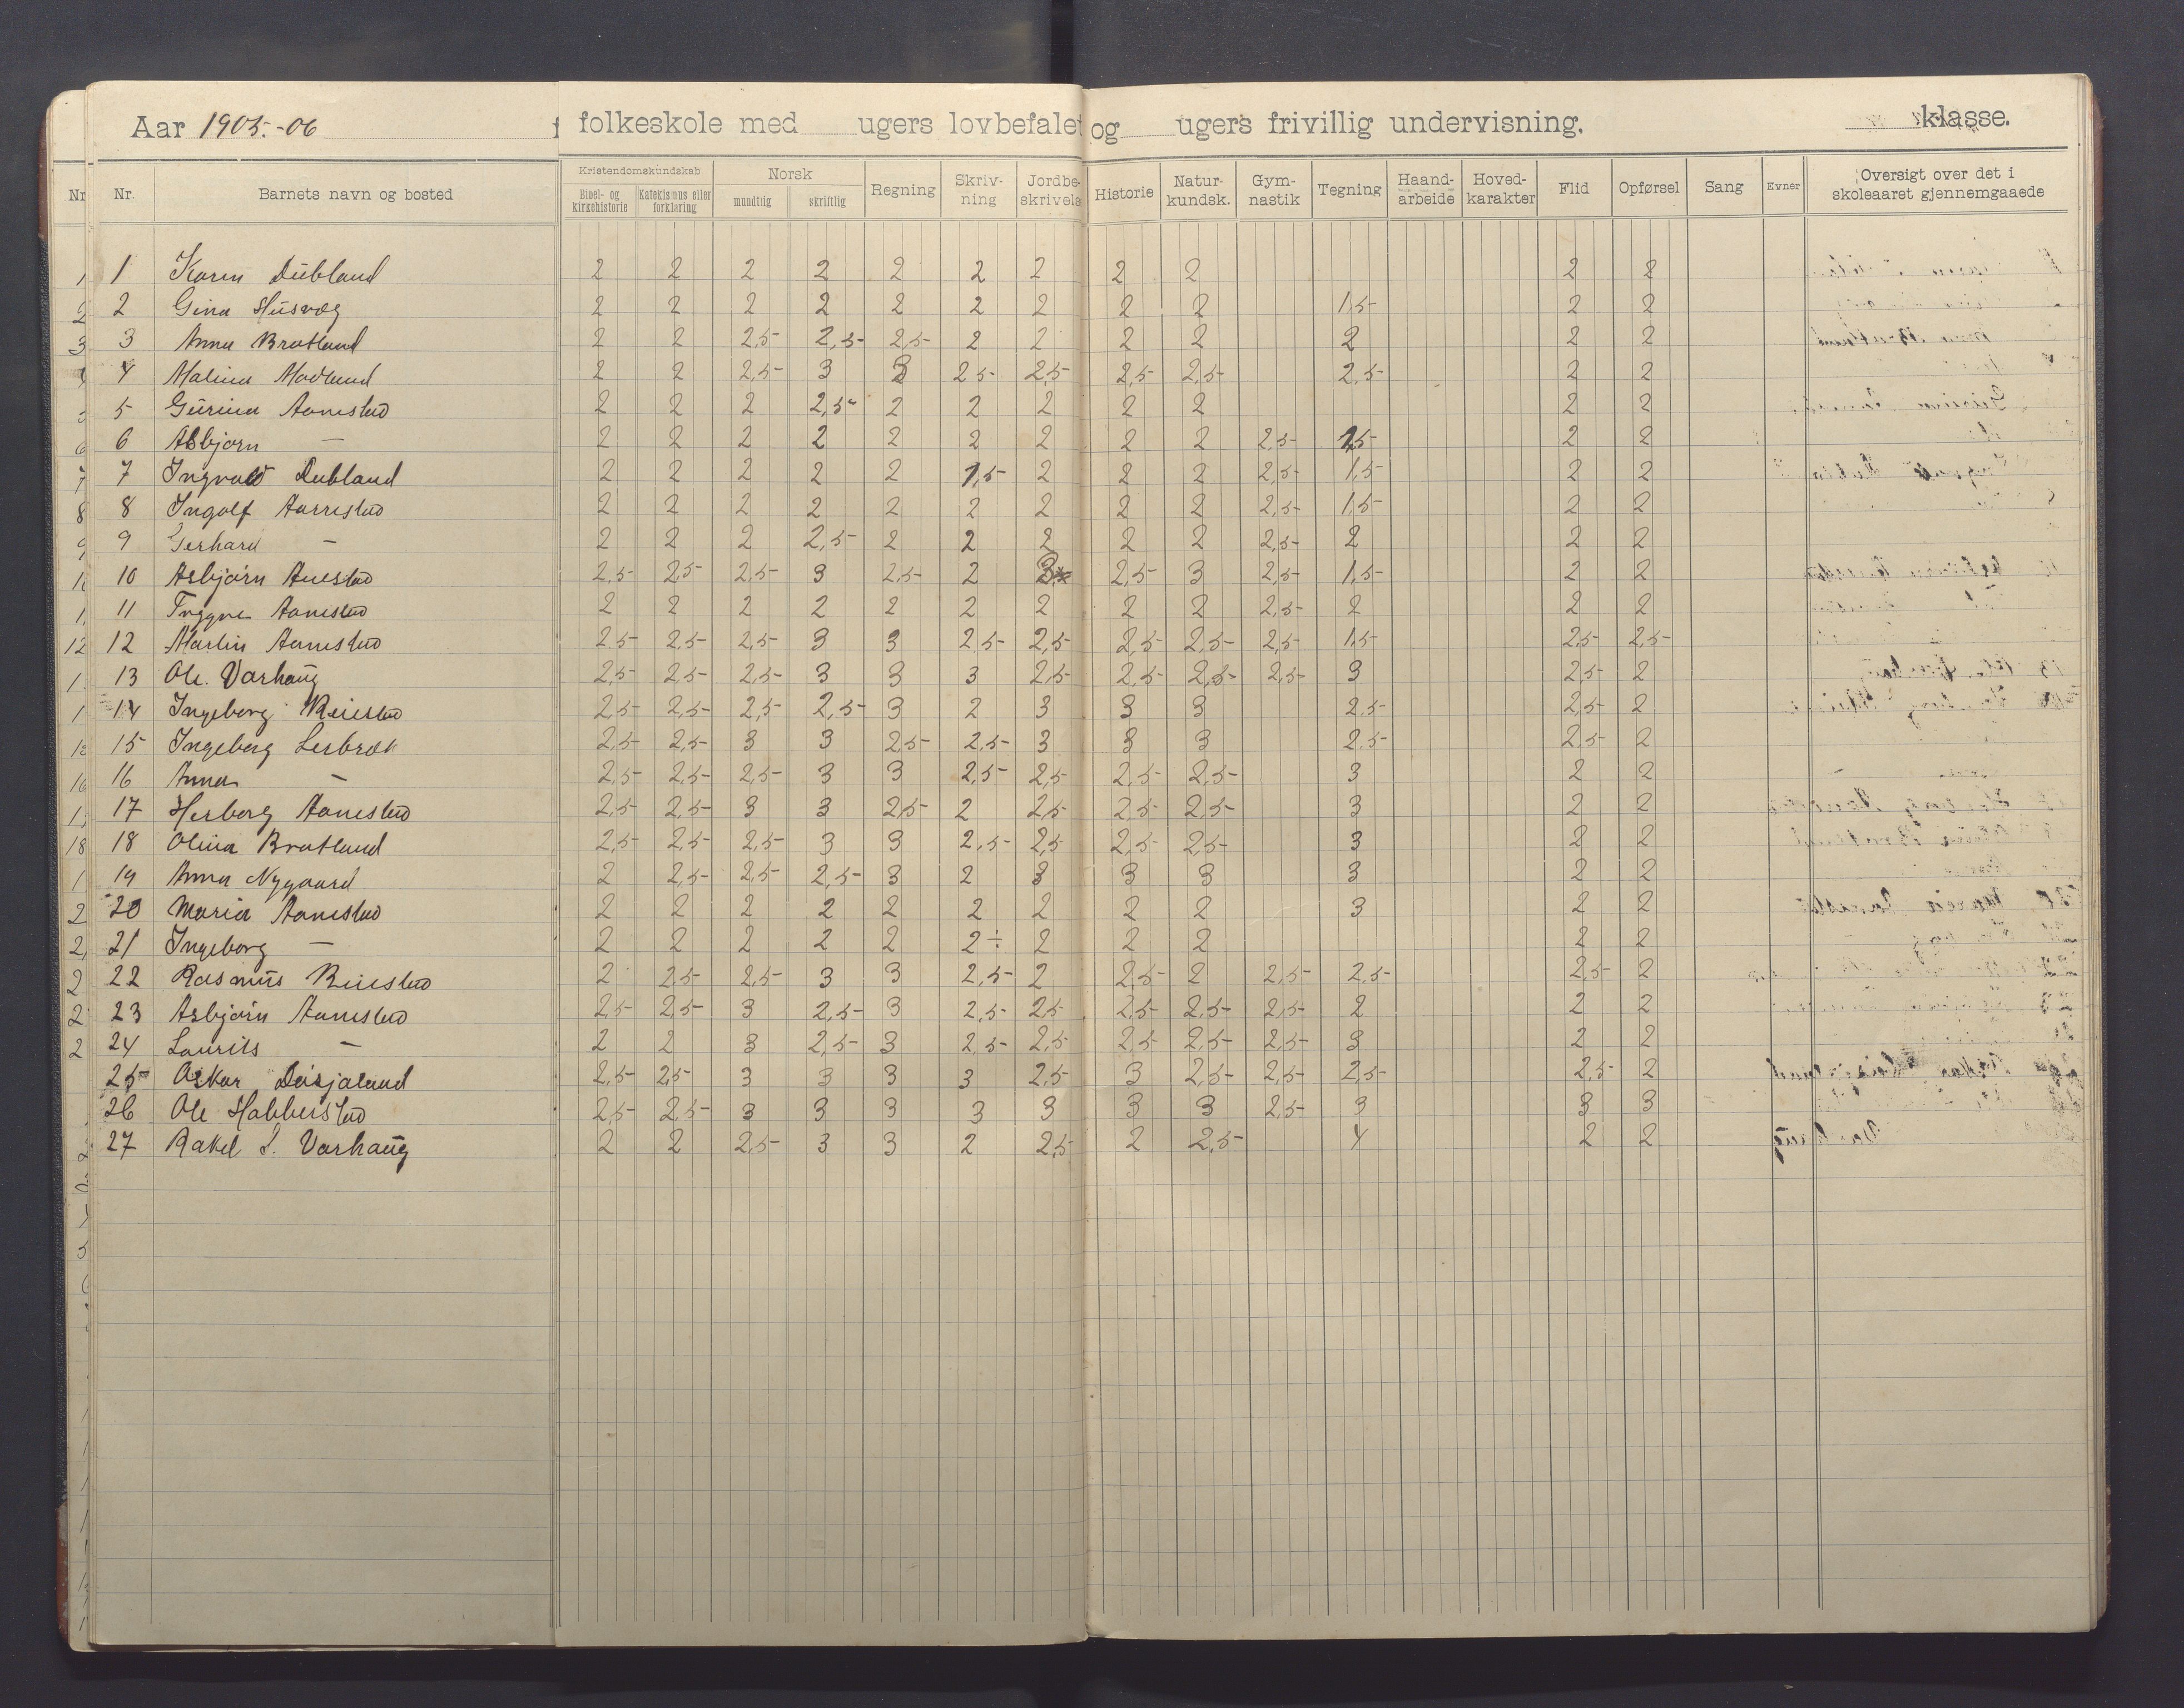 Aar 1905.-06 folkeskole med ugers lovbefalet og ugers frivillig undervisning. klasse.
Nr. Barnets navn og bosted Kristendomskundskab Bibel- og kirkehistorie Katekismus eller forklaring Norsk mundtlig skriftlig Regning Skriv-ning Jordbe-skrivels Historie Natur-kundsk. Gym-nastik Tegning Haand-arbeide Hoved-karakter Flid Opførsel Sang Evner Oversigt over det i skoleaaret gjennemgaaede
1 Karen Dubland 2 2 2 2 2 2 2 2 2 2 2
2 Gina Husvæg 2 2 2 2 2 2 2 2 2 1,5 2 2
3 Anna Bratland 2 2 2,5 2,5 2,5 2 2 2 2 2 2 2
4 Malina Madland 2 2 2,5 3 3 2 5 2,5 2,5 2,5 2,5 2 2
5 Gurina Aanestad 2 2 2 2,5 2 2 2 2 2 2 2
6 Asbjørn — 2 2 2 2 2 2 2 2 2 2,5 1,5 2 2
7 Ingvald Dubland 2 2 2 2 2 1,5 2 2 2 2,5 1,5 2 2
8 Ingolf Aanestad 2 2 2 2 2 2 2 2 2 2,5 1,5 2 2
9 Gerhard — 2 2 2 2,5 2 2 2 2 2 2,5 2 2 2
10 Asbjørn Auestad 2,5 2,5 2,5 3 2,5 2 3 2,5 3 2,5 1,5 2 2
11 Trygve Aanestad 2 2 2 2 2 2 2 2 2 2,5 2 2 2
12 Martin Aanestad 2 5 2,5 2,5 3 3 2 5 2,5 2,5 2,5 2,5 1,5 2,5 2,5
13 Ole. Varhaug 2,5 2,5 2,5 3 3 3 2,5 2,5 2,5 2,5 3 2,5 2
14 Ingeborg Reiestad 2,5 2,5 2,5 2,5 3 2 3 3 3 2,5 2,5 2
15 Ingeborg Lerbræk 2,5 2,5 3 3 2,5 2,5 3 3 3 2,5 2,5 2
16 Anna — 2,5 2,5 2,5 3 3 2,5 2,5 2,5 2,5 3 2 2
17 Herborg Aanestad 2,5 2,5 3 3 2,5 2 2,5 2,5 2,5 3 2 2
18 Olina Bratland 2,5 2,5 2,5 3 3 2,5 2,5 2,5 2,5 3 2 2
19 Anna Nygaard 2 2,5 2,5 2,5 3 2 3 3 3 3 2 2
20 Maria Aanestad 2 2 2 2 2 2 2 2 2 3 2 2
21 Ingeborg — 2 2 2 2 2 2 ÷ 2 2 2 2 2
22 Rasmus Reiestad 2 2,5 2,5 3 3 2,5 2 2,5 2 2,5 2,5 2,5 2
23 Asbjørn Aanestad 2,5 2,5 3 2,5 3 2,5 2,5 2,5 2,5 2,5 2 2 2
24 Laurits — 2 2 3 2,5 3 2,5 2,5 2,5 2,5 2,5 3 2 2
25 Oskar 2,5 2,5 3 3 3 3 2,5 3 2,5 2,5 2,5 2,5 2
26 Ole Habberstad 2,5 2,5 3 3 3 3 3 3 3 2,5 3 3 3
27 Rakel S. Varhaug 2 2 2,5 3 3 2 2,5 2 2,5 4 2 2